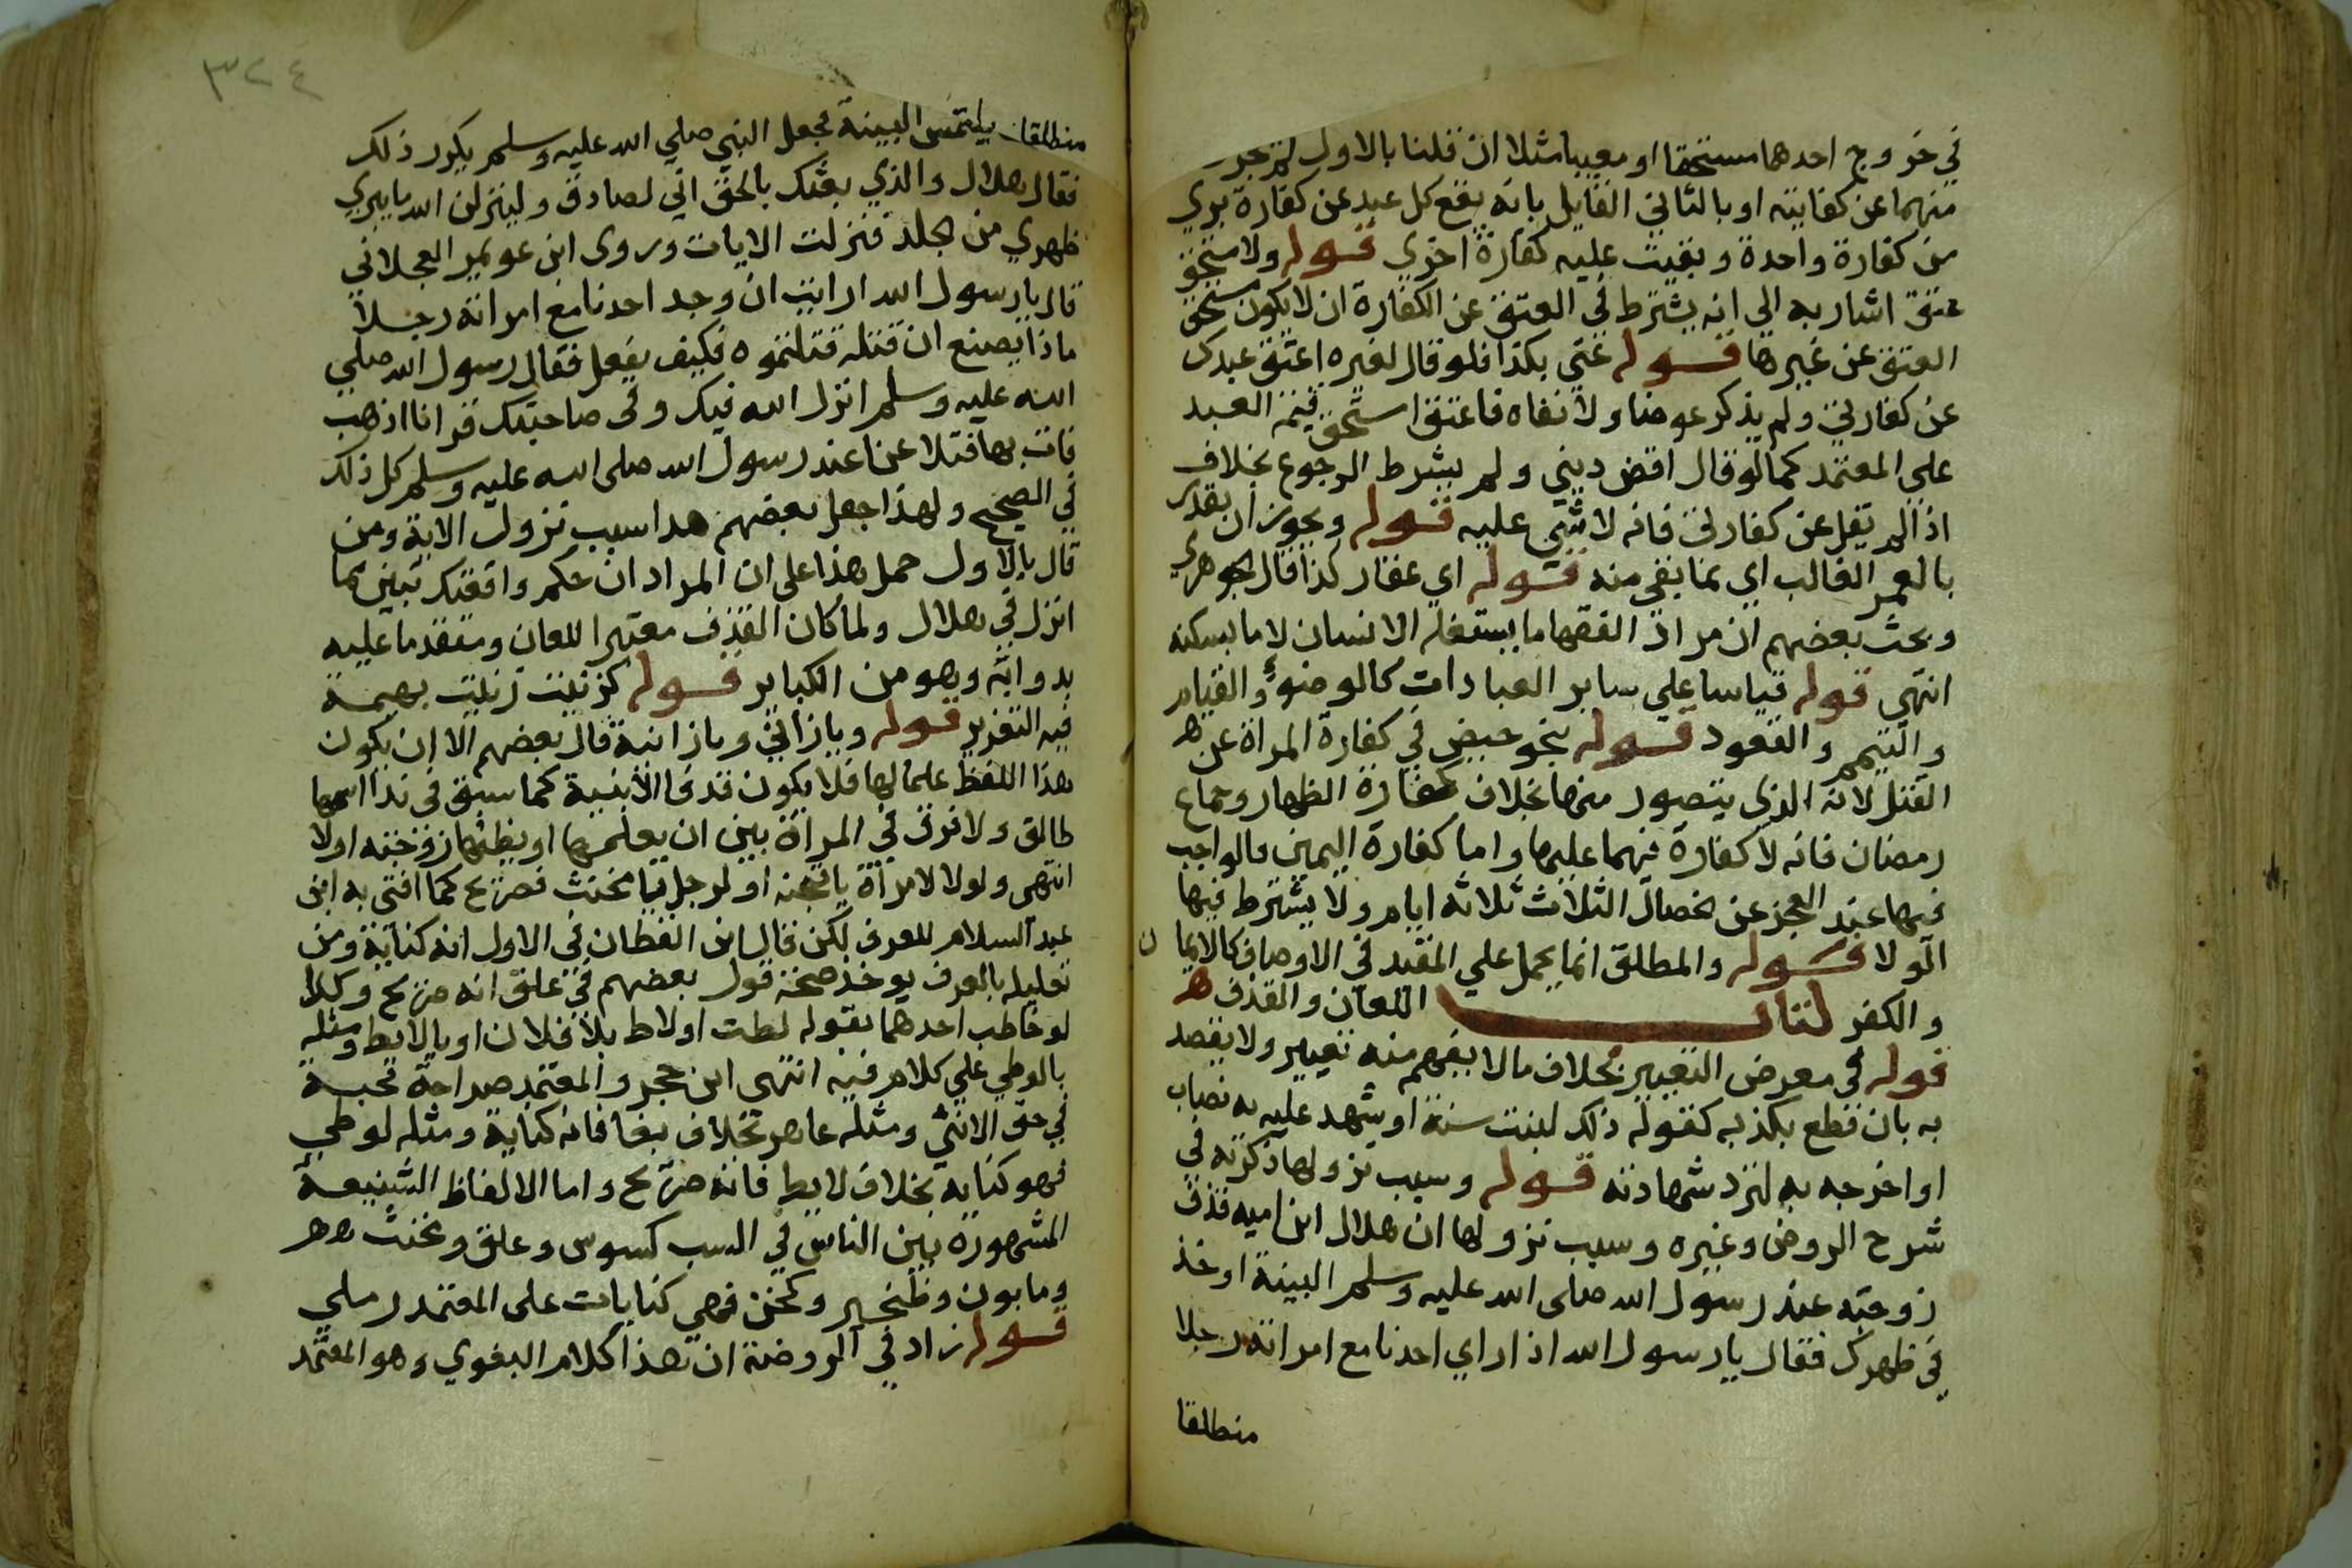 في خروج احدهما مستحقا او معيبا مثلا ان قلنا بالاول لم تجز
منهما عن كفايته او بالثاني القايل بانه يقع كل عبد عن كفارة بري
من كفارة واحدة وبقيت عليه كفارة اخري قوله ولا مستحق
عتق اشار به الي انه يشترط في العتق عن الكفارة ان لا يكون مستحق
العتق عن غيرها قوله عني بكذا فلو قال لغيره اعتق عبدك
عن كفارتي ولم يذكر عوضا ولا نفاه فاعتق استحق قيمة العبد
علي المعتمد كما لو قال اقض ديني ولم يشرط الرجوع بخلاف
اذا لم يقل عن كفارتي فانه لا شي عليه قوله ويجوز ان يقدر
بالعمر الغالب اي بما بقي منه قوله اي عقار كذا قال الجوهري
وبحث بعضهم ان مراد الفقها ما يستغله الانسان لا ما يسكنه
انتهي قوله قياسا علي ساير العبادات كالوضوء والقيام
والتيمم والقعود قوله بنحو حيض في كفارة المراة عن
القتل لانه الذي يتصور منها بخلاف كفارة الظهار وجماع
رمضان فانه لا كفارة فيهما عليها واما كفارة اليمين فالواجب
فيها عند العجز عن خصال الثلاث ثلاثة ايام ولا يشترط فيها
الولا قوله والمطلق انما يحمل علي المقيد في الاوصاف كالايما ن
والكفر كتاب اللعان والقذف
قوله في معرض التعيير بخلاف ما لا يفهم منه تعيير ولا يقصد
به بان قطع بكذبه كقوله ذلك لبنت سنة او شهد عليه به نصاب
او اخرجه به لترد شهادته قوله وسبب نزولها ذكرته في
شرح الروض وغيره وسبب نزولها ان هلال ابن اميه قذف
زوجته عند رسول الله صلى الله عليه وسلم البينة او حد
في ظهرك فقال يا رسول الله اذا راي احدنا مع امراته رجلا
منطلقا
٣٢٤
منطلقا يلتمس البينة فجعل النبي صلي الله عليه وسلم يكرر ذلك
فقال هلال والذي بعثك بالحق اني لصادق ولينزلن الله ما يبري
ظهري من الجلد فنزلت الايات وروى ابن عويمر العجلاني
قال يا رسول الله ارايت ان وجد احدنا مع امراته رجلا
ماذا يصنع ان قتله قتلتموه فكيف يفعل فقال رسول الله صلي
الله عليه وسلم انزل الله فيك وفي صاحبتك قرانا اذهب
فات بها فتلاعنا عند رسول الله صلى الله عليه وسلم كل ذلك
في الصحيح ولهذا جعل بعضهم هذا سبب نزول الاية ومن
قال بالاول حمل هذا على ان المراد ان حكم واقعتك تبين بما
انزل في هلال ولما كان القذف معتبرا للعان ومتقدما عليه
بدوا به وهو من الكباير قوله كزنيت زنيت بهيمة
فيه التعزير قوله ويا زاني ويا زانية قال بعضهم الا ان يكون
هذا اللفظ علما لها فلا يكون قذفا الا بنية كما سبق في ندا اسمها
طالق ولا فرق في المراة بين ان يعلمها او يظنها زوجته اولا
انتهى ولولا لامراة يا قحبه او لرجل يا مخنث فصريح كما افتى به ابن
عبد السلام للعرف لكن قال ابن القطان في الاول انه كناية ومن
تعليله بالعرف يوخذ صحة قول بعضهم في علق انه صريح وكذا
لو خاطب احدهما بقوله لطت او لاط بك فلان او يا لايط ومثله
بالوطي علي كلام فيه انتهى ابن حجر والمعتمد صراحة قحبة
في حق الانثي ومثله عاهر بخلاف بغا فانه كناية ومثله لوطي
فهو كنايه بخلاف لايط فانه صريح واما الالفاظ الشنيعة
المشهورة بين الناس في السب كسوس وعلق ومخنث
ومابون وطنجير وكخن فهي كنايات على المعتمد رملي
قوله زاد في الروضة ان هذا كلام البغوي وهو المعتمد